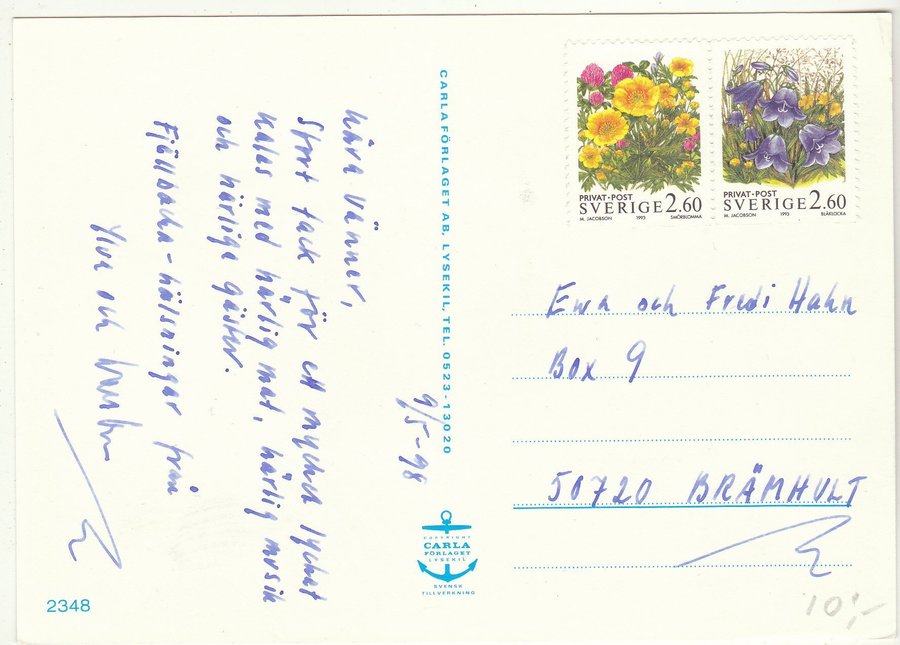 9/5-98
Kära vänner,
Stort tack för ett mycket lyckat
Kalas med härlig mat, härlig musik
och härliga gäster.
Fjällbacka-hälsningar från
Ylva och
CARLAFÖRLAGET AB, LYSEKIL, TEL. 0523-13020
COPYRIGHT
CARLA
FÖRLAGET
LYSEKIL
SVENSK
TILLVERKNING
2348
PRIVAT·POST
SVERIGE 2.60
M. JACOBSON 1993 SMÖRBLOMMA
PRIVAT·POST
SVERIGE 2.60
M. JACOBSON 1993 BLÅKLOCKA
Ewa och Fredi Hahn
Box 9
50720 BRÄMHULT
10:-